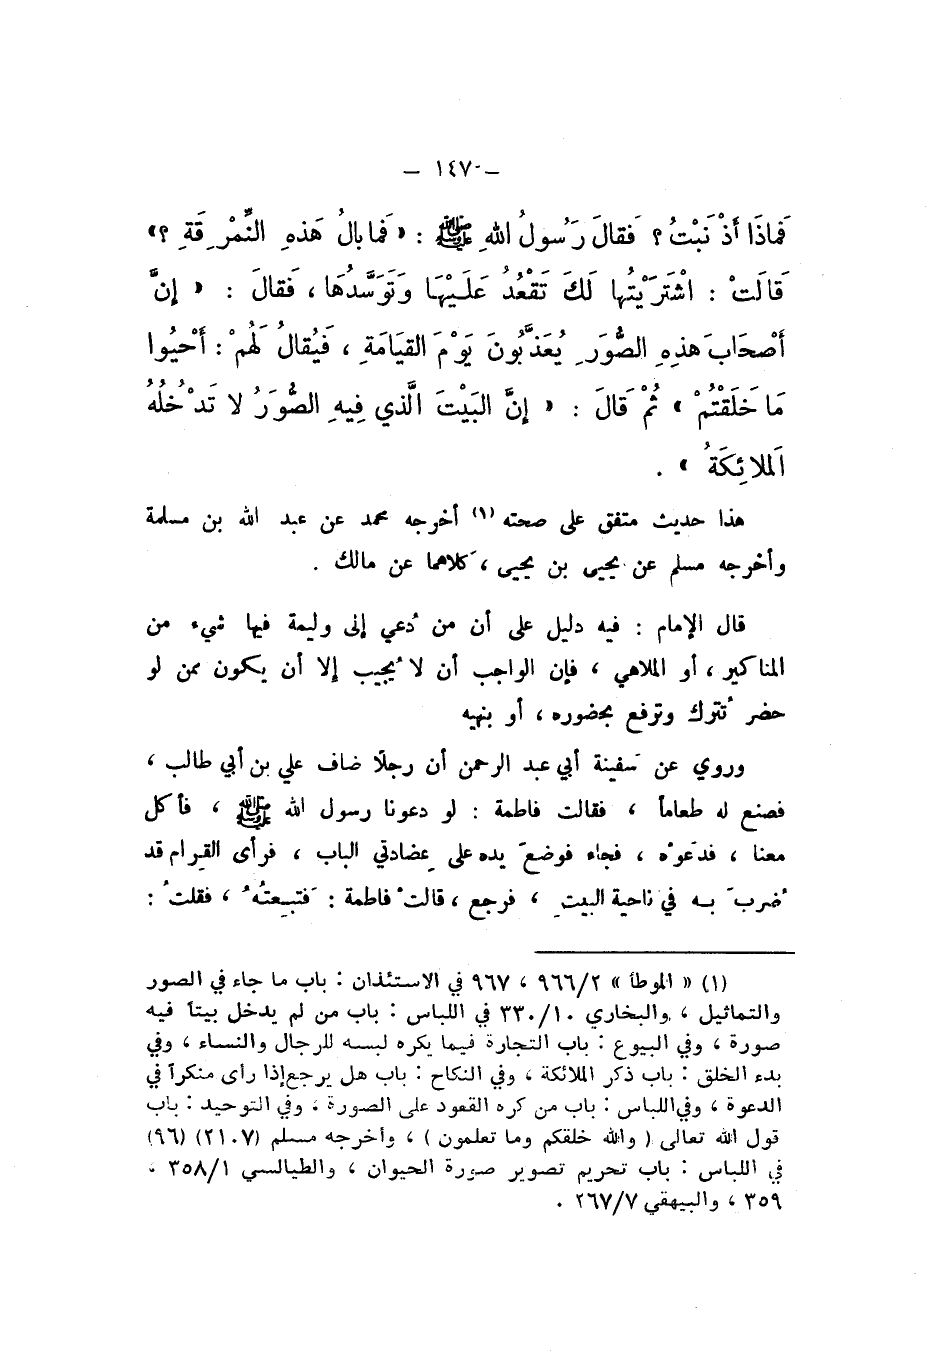 – ١٤٧ –
فَماذَا أَذْنَبْتُ؟ فَقالَ رَسُولُ اللهِ ﷺ : « فَما بالُ هَذهِ النُّمْرِقَةِ ؟ »
قَالَتْ : اشْتَرَيْتُها لَكَ تَقْعُدُ عَلَيْهَا وَتَوَسَّدُهَا ، فَقالَ : « إنَّ
أَصْحَابَ هذِهِ الصُّوَرِ يُعَذَّبُونَ يَوْمَ القيَامَةِ ، فَيُقالُ لَهُمْ : أَحْيُوا
مَا خَلَقْتُمْ » ثُمَّ قَالَ : « إنَّ البَيْتَ الَّذي فِيهِ الصُّوَرُ لا تَدْخُلُهُ
اَلملائِكَةُ » .
هذا حديث متفق على صحته (١) أخرجه محمد عن عبد الله بن مسلمة
وأخرجه مسلم عن يحيى بن يحيى ، كلاهما عن مالك .
قال الإمام : فيه دليل على أن من دُعي إلى وليمة فيها شيء من
المناكير ، أو الملاهي ، فإن الواجب أن لا يُجيب إلا أن يكون ممن لو
حضر تُترك وترفع بحضوره ، أو بنهيه
وروي عن سَفينة أبي عبد الرحمن أن رجلًا ضاف علي بن أبي طالب ،
فصنع له طعاماً ، فقالت فاطمة : لو دعونا رسول الله ﷺ ، فأكل
معنا ، فدعَوْه ، فجاء فوضعَ يده على عِضادتي الباب ، فرأى القِرام قد
ضُربَ بـه في ناحية البيتِ ، فرجع ، قالتْ فاطمة : فَتبِعتُهُ ، فقلتُ :
(١) « الموطأ » ٩٦٦/٢ ، ٩٦٧ في الاستئذان : باب ما جاء في الصور
والتماثيل ، والبخاري ٣٣٠/١٠ في اللباس : باب من لم يدخل بيتاً فيه
صورة ، وفي البيوع : باب التجارة فيما يكره لبسه للرجال والنساء ، وفي
بدء الخلق : باب ذكر الملائكة ، وفي النكاح : باب هل يرجع إذا رأى منكراً في
الدعوة ، وفي اللباس : باب من كره القعود على الصورة ، وفي التوحيد : باب
قول الله تعالى ( والله خلقكم وما تعلمون ) ، وأخرجه مسلم (٢١٠٧) (٩٦)
في اللباس : باب تحريم تصوير صورة الحيوان ، والطيالسي ٣٥٨/١ ،
٣٥٩ ، والبيهقي ٢٦٧/٧ .